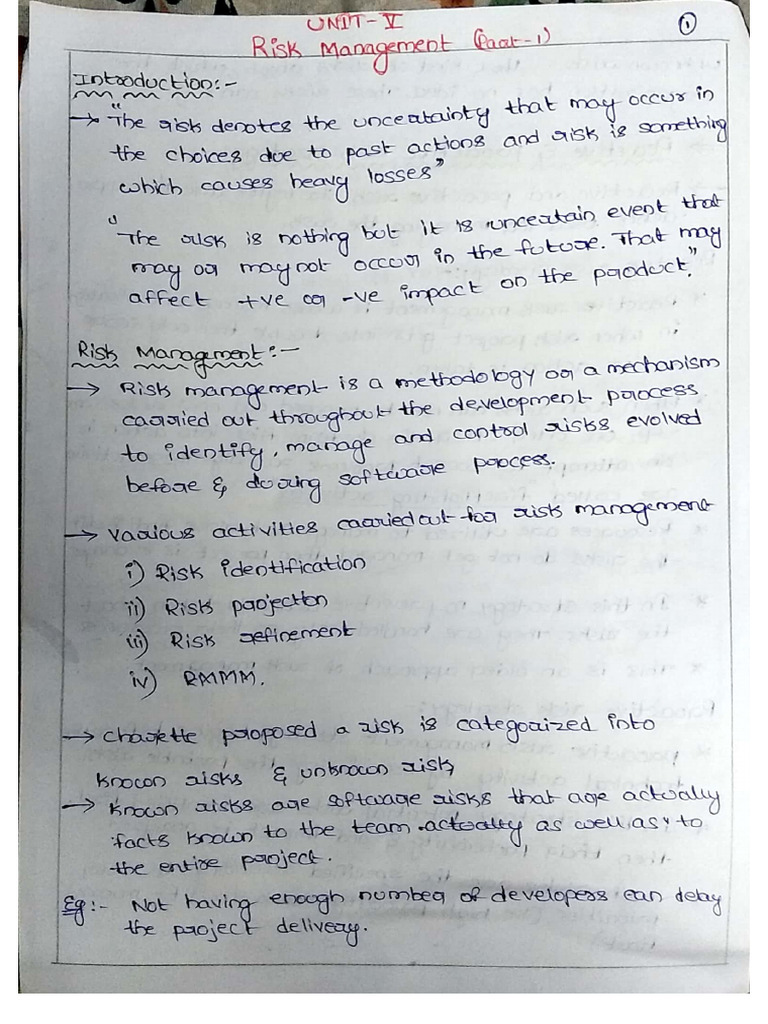 UNIT-V
①
Risk Management (Part-1)
Introduction:-
→ "The risk denotes the uncertainty that may occur in
the choices due to past actions and risk is something
which causes heavy losses"
"The risk is nothing but it is uncertain event that
may or may not occur in the future. That may
affect +ve or -ve impact on the product."
Risk Management:-
→ Risk management is a methodology or a mechanism
carried out throughout the development process
to identify, manage and control risks, evolved
before & during software process.
→ Various activities carried out for risk management
i) Risk identification
ii) Risk projection
iii) Risk refinement
iv) RMMM.
→ Charette proposed a risk is categorized into
known risks & unknown risk,
→ Known risks are software risks that are actually
facts known to the team actually as well as, to
the entire project.
Eg:- Not having enough number of developers can delay
the project delivery.